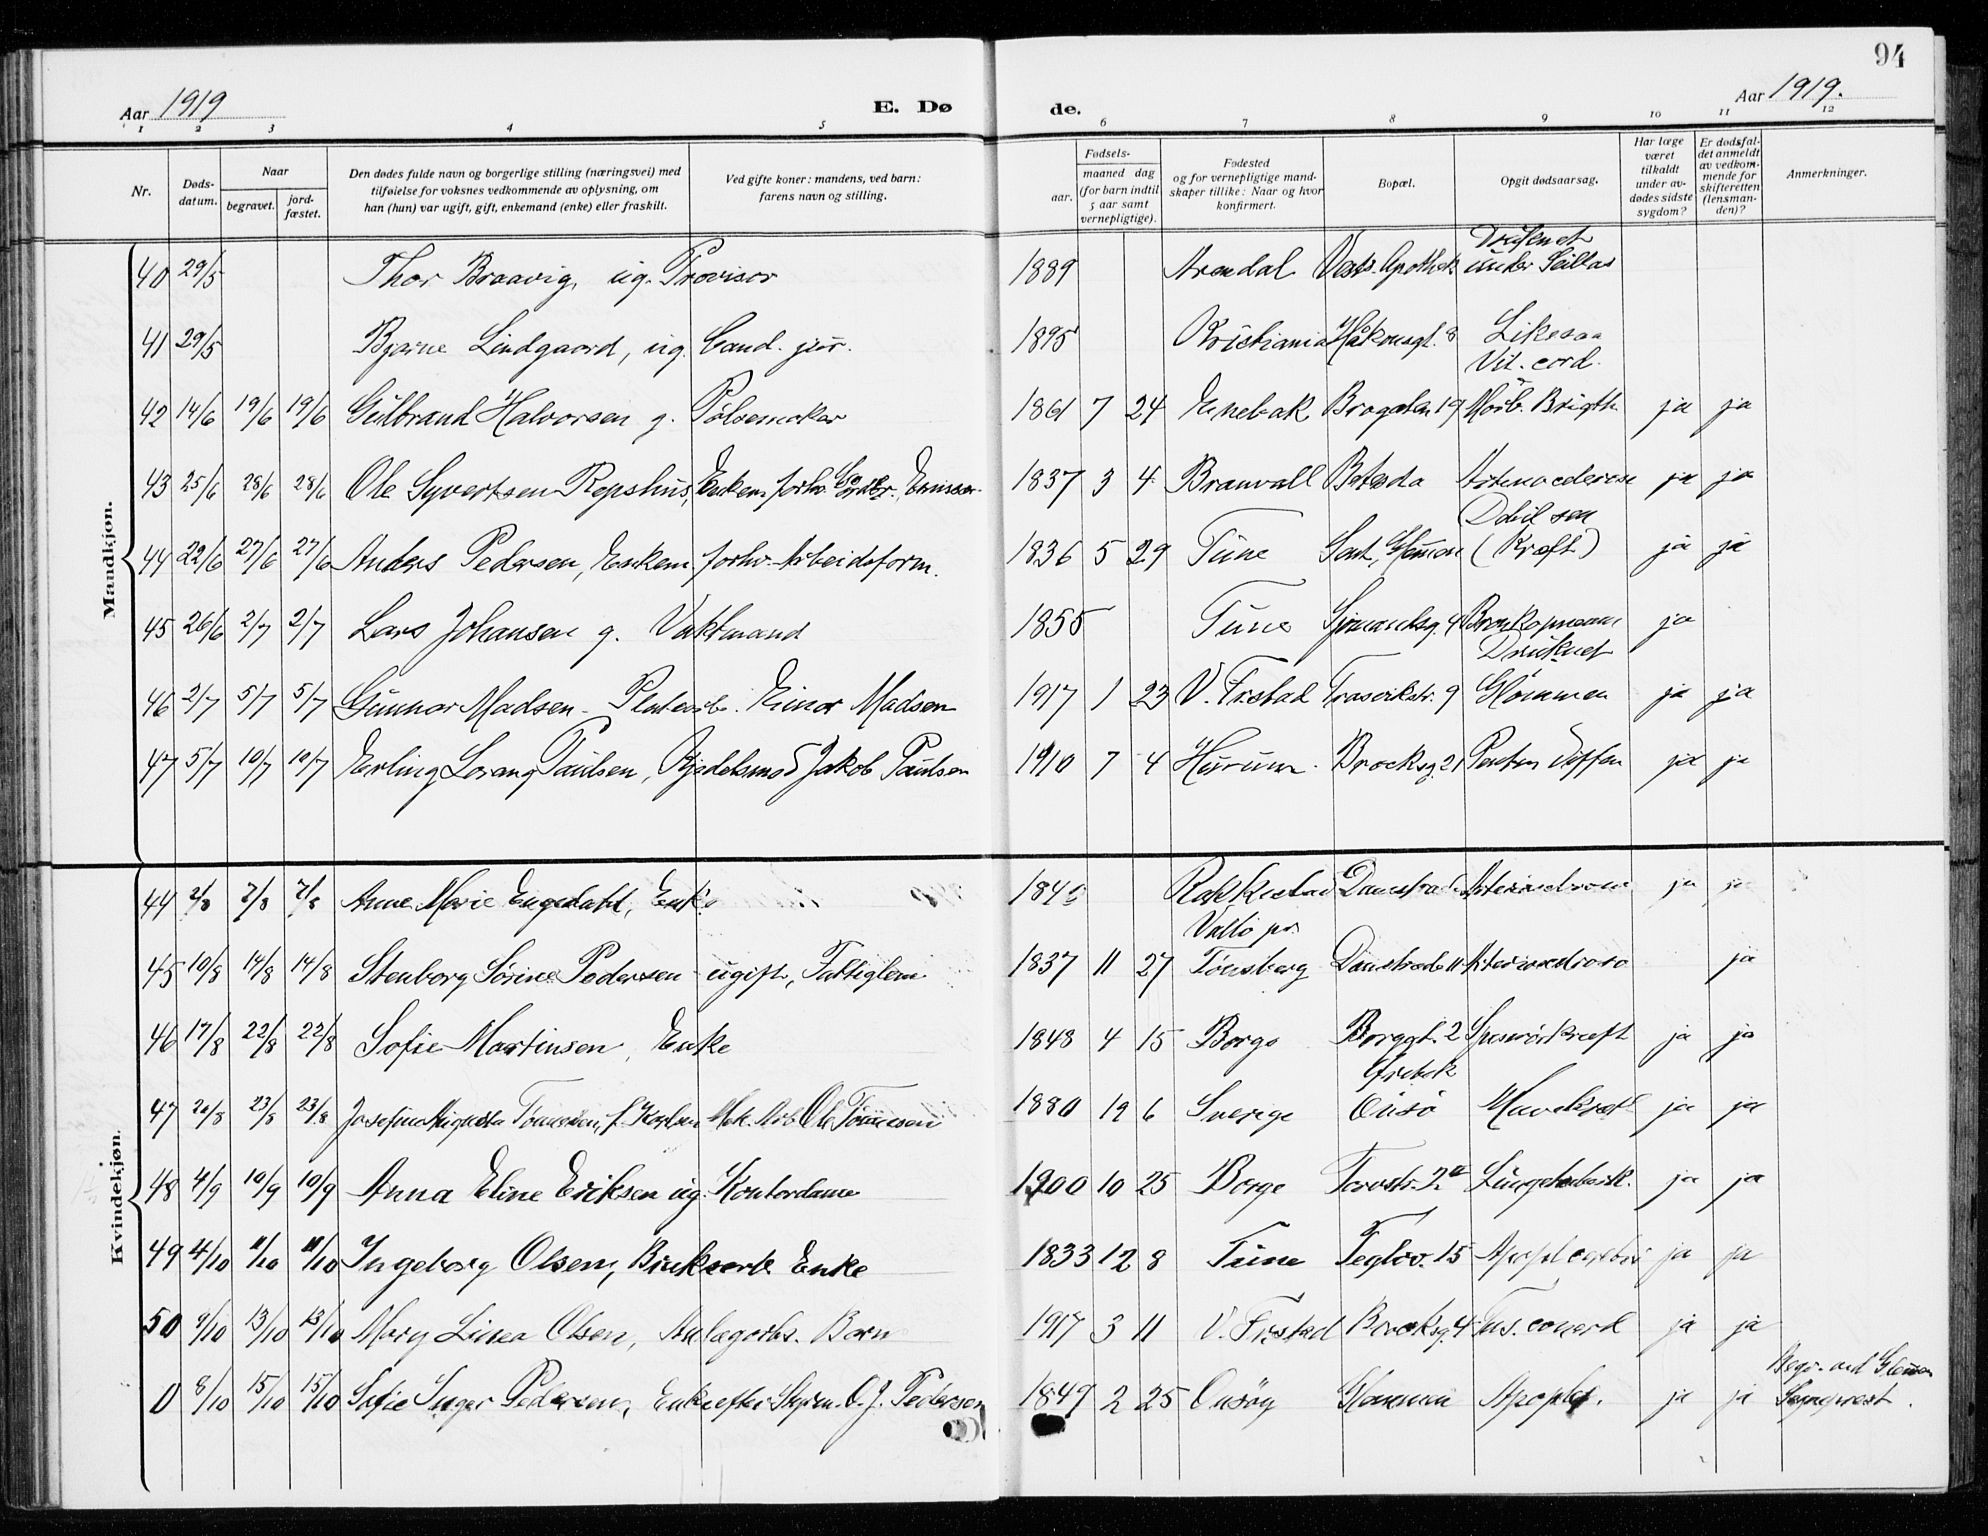 94
Aar 1919 E. Dø de. Aar 1919.
1 2 3 4 5 6 7 8 9 10 11 12
Nr.
Døds-
datum.
Naar
begravet.
jord-
fæstet.
Den dødes fulde navn og borgerlige stilling (næringsvei) med
tilføielse for voksnes vedkommende av oplysning, om
han (hun) var ugift, gift, enkemand (enke) eller fraskilt.
Ved gifte koner: mandens, ved barn:
farens navn og stilling.
Fødsels-
aar.
maaned dag
(for barn indtil
5 aar samt
vernepligtige).
Fødested
og for vernepligtige mand-
skaper tillike: Naar og hvor
konfirmert.
Bopæl.
Opgit dødsaarsag.
Har læge
været
tilkaldt
under av-
dødes sidste
sygdom?
Er dødsfal-
det anmeldt
av vedkom-
mende for
skifteretten
(lensman-
den)?
Anmerkninger.
Mandkjøn.
40 29/5 Thor Braavig, ug. Provisor 1889 Arendal Vests. Apothek Druknet under Seilas
41 29/5 Bjarne Lindgaard, ug. Cand. jur. 1895 Kristiania Håkonsgt. 8 Likesaa
42 14/6 19/6 19/6 Gulbrand Halvorsen g. Pølsemaker 1861 7 24 Enebak Brogaten 19 Vit. cord. Morb. Brigth ja ja
43 25/6 28/6 28/6 Ole Syvertsen Repshus, Enkem. forhv. Gardbr. 1837 3 4 ja ja
44 22/6 27/6 27/6 Anders Pedersen, Enkem. forhv. Arbeidsform. 1836 5 29 Tune (Kræft) ja ja
45 26/6 2/7 2/7 Lars Johansen g. Vaktmand 1855 Tune Sjømandsg. 4 ja
46 2/7 5/7 5/7 Gunnar Madsen - Einar Madsen 1917 1 23 V. Fr.stad Trosvikstr. 9 Druknet Glommen ja ja
47 5/7 10/7 10/7 Erling Paulsen, Kjedelsmed Jakob Paulsen 1910 7 4 Hurum. Brocksg. 21 ja ja
Kvindekjøn.
44 2/8 7/8 7/8 Anne Marie Engedahl, Enke Rakkestad ja ja
45 10/8 14/8 14/8 Stenborg Sørine Pedersen ugift, Fattiglem 1837 11 27 Vallø pr. Tønsberg Damstrædet 11 ja
46 17/8 22/8 22/8 Sofie Martinsen, Enke 1848 4 15 Borge Borggt. 2 Spiserørkræft ja ja
47 20/8 23/8 23/8 Josefine Augusta Tønnesen, f. Karlsen Mek. Arb Ole Tønnesen 1880 6 Sverige Onsø Mavekræft ja ja
48 4/9 10/9 10/9 Anna Eline Eriksen ug. Kontordame 1900 10 25 Borge Torvstr. Lungetuberk. ja ja
49 4/10 11/10 11/10 Ingeborg Olsen, Enke 1833 12 8 Tune Teglv. 15 ja ja
50 9/10 13/10 13/10 Mary Linea Olsen, Anlægarbs. Barn 1917 3 11 V. Fr.stad Brocksg. 4 ja ja
0 8/10 15/10 15/10 Sofie Inger Pedersen, Enke efter Skibsm. O. J. Pedersen 1849 2 25 Onsøy Glemmen Apoplex. ja ja